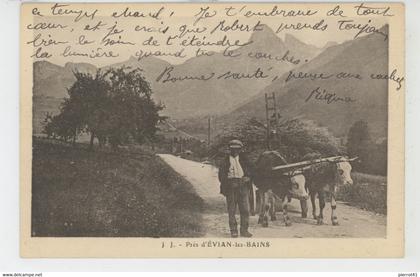 en temps chaud, Je t'embrasse de tout
cœur, et je crois que Robert prends toujours
bien le soin de t'éteindre
la lumière quand tu te couches.
Bonne santé, pense aux caches
J J. - Près d'ÉVIAN-les-BAINS